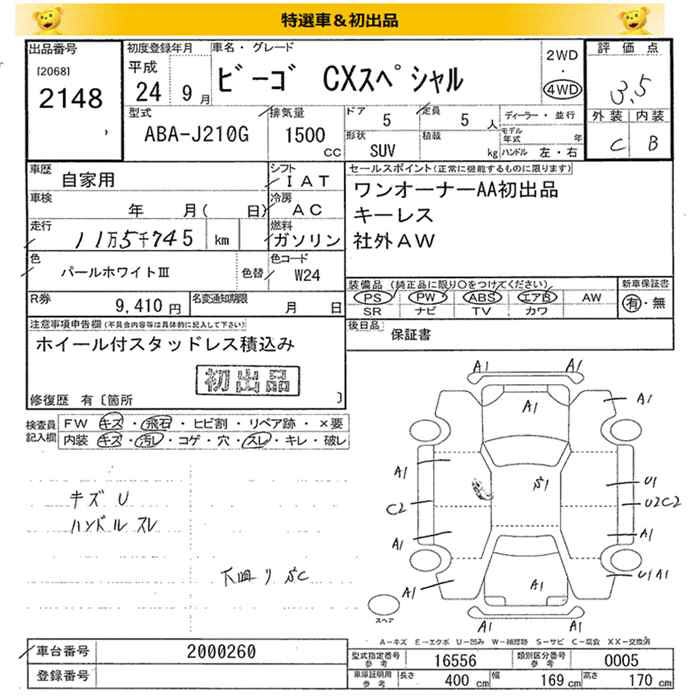 特選車＆初出品
出品番号
[2068]
2148
初度登録年月
平成
24 9月
車名・グレード
ビーゴ CXスペシャル
2WD
・
4WD
評価点
3.5
外装 内装
C B
型式
ABA-J210G
排気量
1500
CC
ドア
5
定員
5 人
形状
SUV
積載
kg
ディーラー・並行
モデル年式 年
ハンドル 左・右
車歴
自家用
シフト
I A T
車検
年 月( 日)
冷房
A C
走行
11万5千745 km
燃料
ガソリン
色
パールホワイトⅢ
色替
色コード
W24
R券
9,410 円
名変通知期限
月 日
セールスポイント(正常に機能するものに限ります)
ワンオーナーAA初出品
キーレス
社外AW
装備品 (純正品に限り○をつけてください)
PS PW ABS エアB AW
SR ナビ TV カワ
新車保証書
有・無
後日品
保証書
注意事項申告欄(不具合内容等は具体的に記入して下さい)
ホイール付スタッドレス積込み
初出品
修復歴 有〔箇所 〕
検査員記入欄
FW キズ・飛石・ヒビ割・リペア跡・×要
内装 キズ・汚レ・コゲ・穴・スレ・キレ・破レ
キズ U
ハンドル スレ
下回り
A1 A1
A1 A1
A1
U1
C2 U2C2
A1 A1
A1
A1 U1A1
A1 A1
スペア
A－キズ E－エクボ U－凹み W－補修跡 S－サビ C－腐食 XX－交換済
車台番号
2000260
登録番号
型式指定番号
参考
16556
類別区分番号
参考
0005
車庫証明用
参考
長さ 400 cm 幅 169 cm 高さ 170 cm